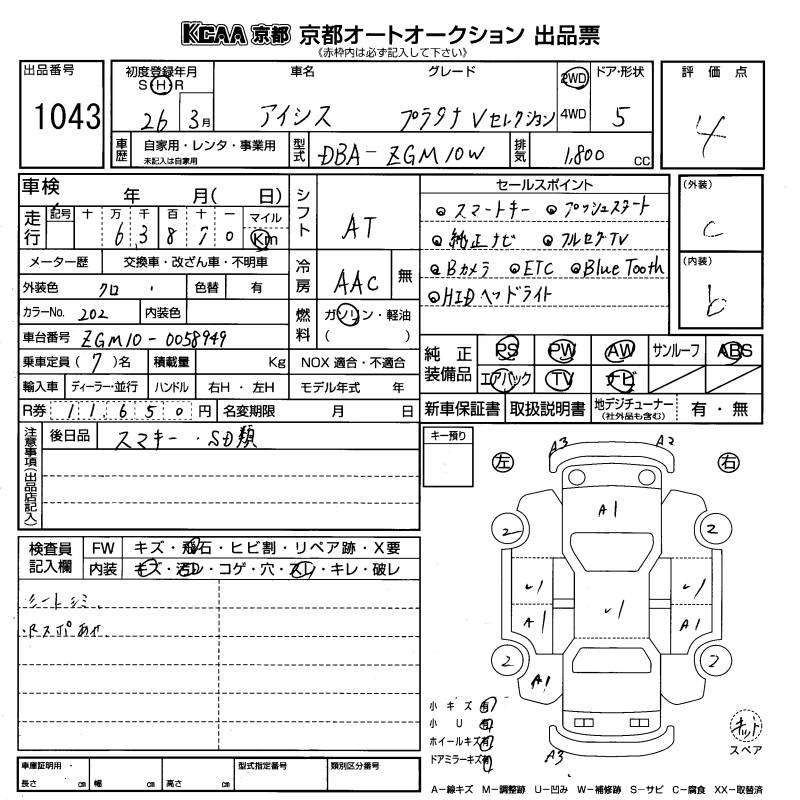 KCAA 京都 京都オートオークション 出品票
《赤枠内は必ず記入して下さい》
出品番号 1043
初度登録年月 S H R 26 3月
車名 アイシス
グレード プラタナ Vセレクション
2WD 4WD
ドア・形状 5
評価点 4
車歴 自家用・レンタ・事業用
未記入は自家用
型式 DBA-ZGM10W
排気 1,800 CC
車検 年 月( 日)
シフト AT
走行 記号 十 万 千 百 十 一 マイル
6 3 8 7 0 Km
メーター歴 交換車・改ざん車・不明車
冷房 AAC 無
外装色 クロ 色替 有
カラーNo. 202 内装色
燃料 ガソリン・軽油
( )
車台番号 ZGM10-0058949
乗車定員(7)名 積載量 Kg NOX 適合・不適合
輸入車 ディーラー・並行 ハンドル 右H・左H モデル年式 年
R券 11650円 名変期限 月 日
セールスポイント
スマートキー プッシュスタート
純正ナビ フルセグTV
Bカメラ ETC Blue Tooth
HIDヘッドライト
(外装) C
(内装) b
純正装備品 PS PW AW サンルーフ ABS
エアバック TV ナビ
新車保証書 取扱説明書 地デジチューナー (社外品も含む) 有・無
注意事項(出品店記入) 後日品 スマキー・SD類
キー預り
左 右
A3 A2
A1
2 2
U1 U1 U1
A1 A1
2 2
A1
A3
検査員記入欄 FW キズ・飛石・ヒビ割・リペア跡・X要
内装 キズ・汚レ・コゲ・穴・スレ・キレ・破レ
シートシミ
Rスポあせ
小キズ 有
小U 有
ホイールキズ 有
ドアミラーキズ 有
キット
スペア
車庫証明用・ 長さ cm 幅 cm 高さ cm
型式指定番号
類別区分番号
A-線キズ M-調整跡 U-凹み W-補修跡 S-サビ C-腐食 XX-取替済